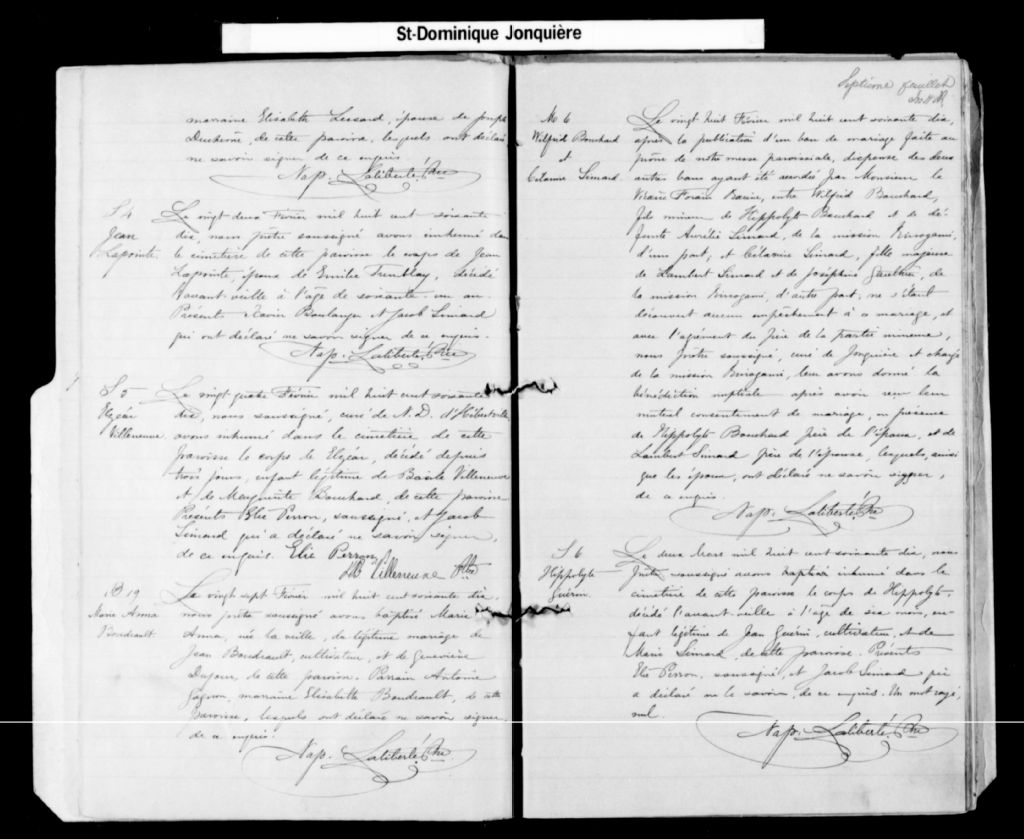 St-Dominique Jonquière
marraine Elisabeth Lessard, épouse de Joseph
Duchesne, de cette paroisse, lesquels ont déclaré
ne savoir signer de ce enquis.
Nap. Laliberté, Ptre
S 4
Jean
Lapointe
Le vingt deux Février mil huit cent soixante
dix, nous prêtre soussigné avons inhumé dans
le cimetière de cette paroisse le corps de Jean
Lapointe, époux de Emilie Tremblay, décédé
l'avant veille à l'âge de soixante un an.
Présents Boulanger et Jacob Simard
qui ont déclaré ne savoir signer de ce enquis.
Nap. Laliberté, Ptre
S 5
Elzéar
Villeneuve
Le vingt quatre Février mil huit cent soixante
dix, nous soussigné, curé de N. D. d'Hébertville
avons inhumé dans le cimetière de cette
paroisse le corps de Elzéar, décédé depuis
trois jours, enfant légitime de Basile Villeneuve
et de Marguerite Bouchard, de cette paroisse
Présents Elie Perron, soussigné, et Jacob
Simard qui a déclaré ne savoir signer,
de ce enquis. Elie Perron
Villeneuve Ptre
B 19
Marie Anna
Boudrault
Le vingt sept Février mil huit cent soixante dix
nous prêtre soussigné avons baptisé Marie
Anna, née la veille, du légitime mariage de
Jean Boudrault, cultivateur, et de Geneviève
Dufour, de cette paroisse. Parrain Antoine
Gagnon, marraine Elisabeth Boudrault, de cette
paroisse, lesquels ont déclaré ne savoir signer,
de ce enquis.
Nap. Laliberté, Ptre
Septième feuillet
M. 6
Wilfrid Bouchard
et
Célanire Simard
Le vingt huit Février mil huit cent soixante dix,
après la publication d'un ban de mariage faite au
prône de notre messe paroissiale, dispense des deux
autres bans ayant été accordée par Monsieur le
Vicaire Forain, entre Wilfrid Bouchard,
fils mineur de Hippolyte Bouchard et de dé
funte Aurélie Simard, de la mission Kinogami,
d'une part; et Célanire Simard, fille majeure
de Lambert Simard et de Joséphine Gauthier, de
la mission Kinogami, d'autre part; ne s'étant
découvert aucun empêchement à ce mariage, et
avec l'agrément du père de la partie mineure,
nous prêtre soussigné, curé de Jonquière et chargé
de la mission Kinogami, leur avons donné la
bénédiction nuptiale après avoir reçu leur
mutuel consentement de mariage, en présence
de Hippolyte Bouchard père de l'époux, et de
Lambert Simard père de l'épouse, lesquels, ainsi
que les époux, ont déclaré ne savoir signer,
de ce enquis.
Nap. Laliberté, Ptre
S 6
Hippolyte
Guérin
Le deux Mars mil huit cent soixante dix, nous
prêtre soussigné avons baptisé inhumé dans le
cimetière de cette paroisse le corps de Hippolyte,
décédé l'avant veille à l'âge de six mois, en-
fant légitime de Jean Guérin, cultivateur, et de
Marie Simard, de cette paroisse. Présents
Elie Perron, soussigné, et Jacob Simard qui
a déclaré ne le savoir, de ce enquis. Un mot rayé,
nul.
Nap. Laliberté, Ptre